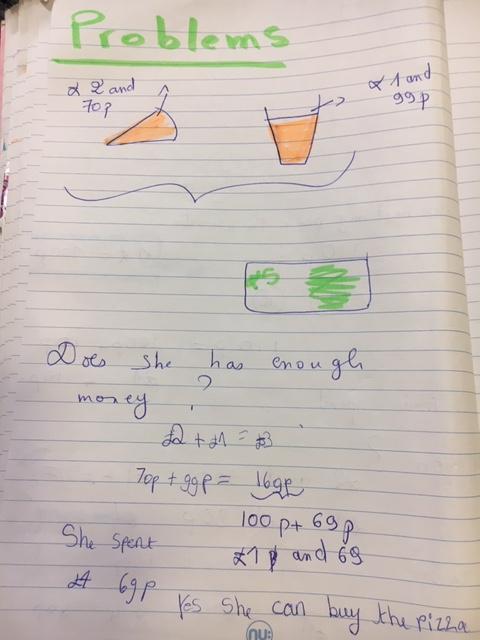 Problems
£2 and
70p
£1 and
99p
£5
Does she has enough
money ?
£2 + £1 = £3
70p + 99p = 169p
100p + 69p
£1 and 69
She spent
£4 69p
Yes she can buy the pizza
nu: